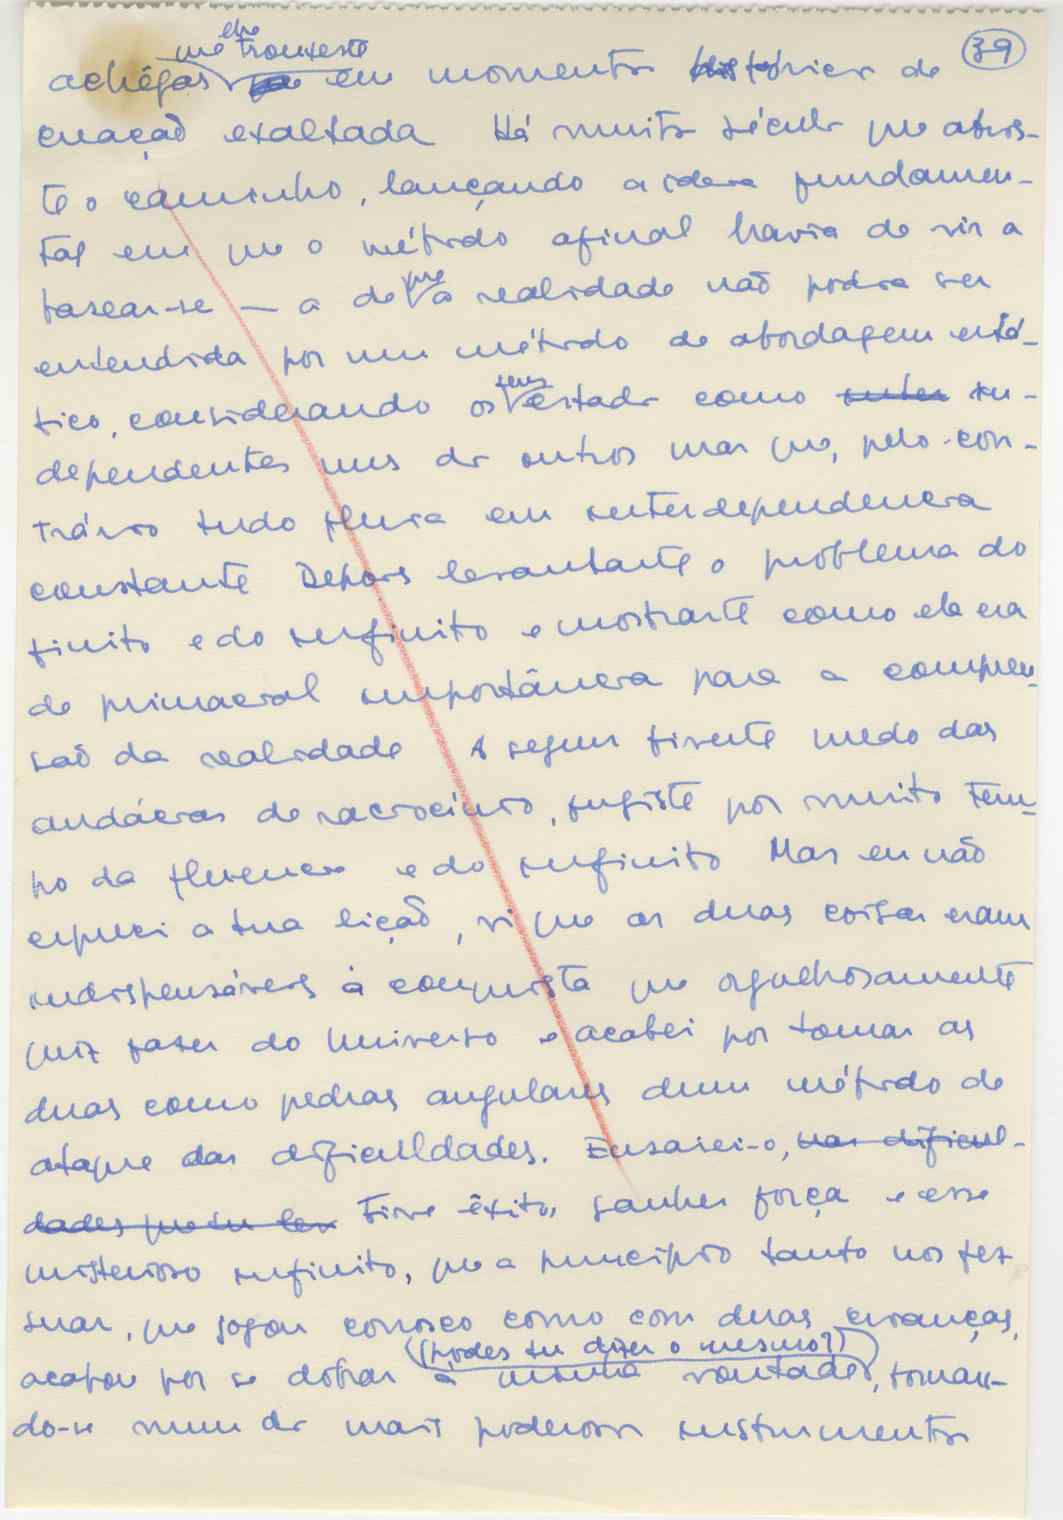 39
achêgas que lhe trouxeste em momentos históricos de
criação exaltada Há muitos séculos que abris-
te o caminho, lançando a ideia fundamen-
tal em que o método afinal havia de vir a
basear-se — a de que a realidade não podia ser
entendida por um método de abordagem está-
tico, considerando os seus estados como inter in-
dependentes uns dos outros mas que, pelo con-
trário tudo fluia em interdependencia
constante Depois levantaste o problema do
finito e do infinito e mostraste como ele era
de primacial importância para a compreen-
são da realidade A seguir tiveste medo das
audácias do raciocínio, fugiste por muito tem-
po da fluencia e do infinito Mas eu não
esqueci a tua lição, vi que as duas coisas eram
indispensáveis à conquista que orgulhosamente
quiz fazer do Universo e acabei por tomar as
duas como pedras angulares dum método de
ataque das dificuldades. Ensaiei-o, nas dificul-
dades Tive êxitos, ganhei força e esse
misterioso infinito, que a princípio tanto nos fez
suar, que jogou conosco como com duas crianças,
acabou por se dobrar à minha vontade (podes tu dizer o mesmo?), tornan-
do-se num dos mais poderosos instrumentos